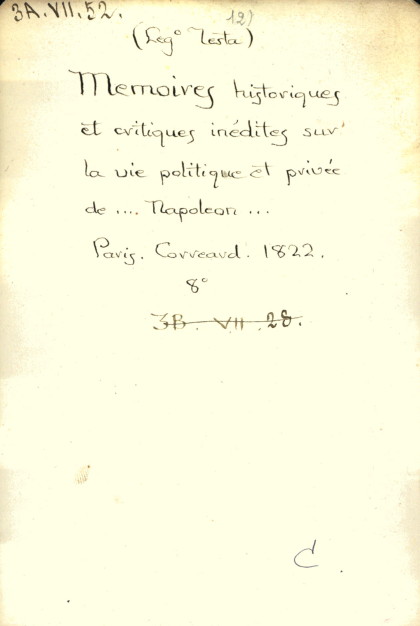 3A.VII.52.
12)
(Leg° Testa)
Memoires historiques
et critiques inédites sur
la vie politique et privée
de .... Napoleon ...
Paris. Correard. 1822.
8°
3B. VII. 28.
C.